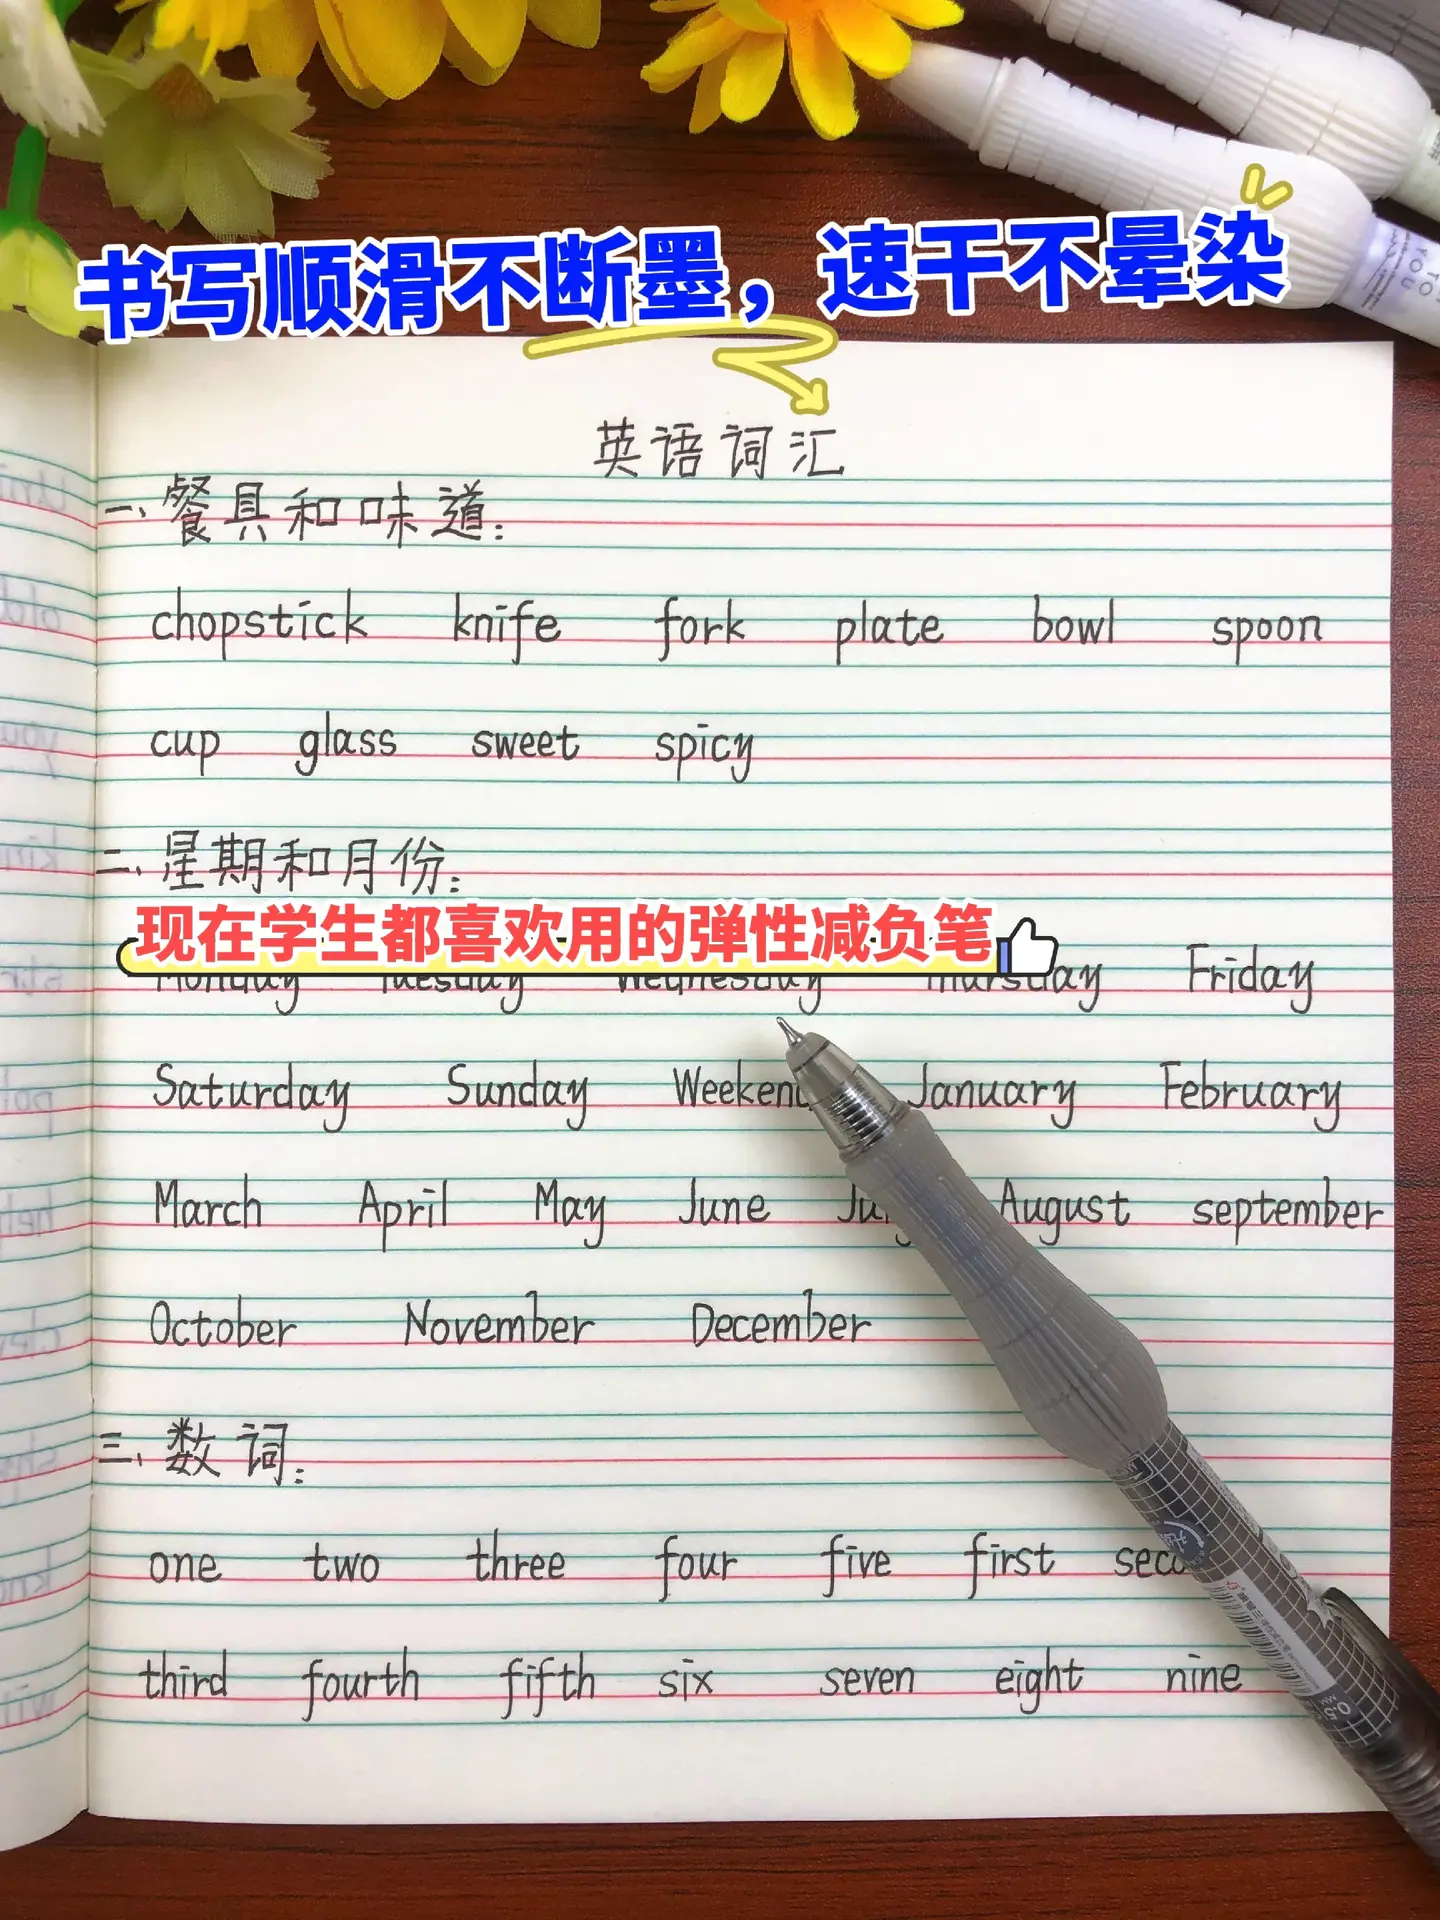 书写顺滑不断墨，速干不晕染
英语词汇
一、餐具和味道:
chopstick knife fork plate bowl spoon
cup glass sweet spicy
二、星期和月份:
现在学生都喜欢用的弹性减负笔
Monday Tuesday Wednesday Friday
Saturday Sunday January February
March April May June August september
October November December
三、数词:
one two three four five first
third fourth fifth six seven eight nine